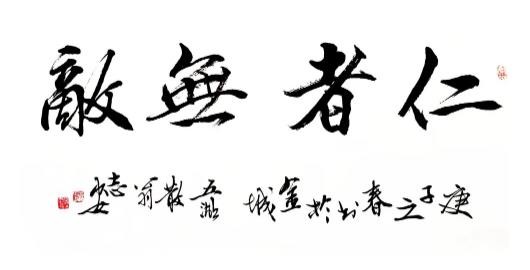 仁者無敵
庚子之春书於金城 五湖散翁 志